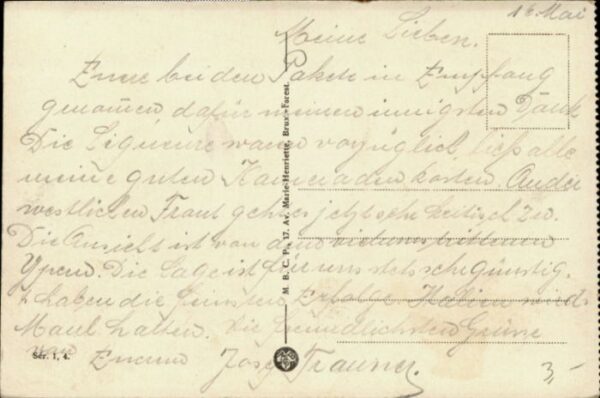 16. Mai
Meine Lieben.
Eure beiden Pakete in Empfang
genommen, dafür meinen innigsten Dank.
Die Liqueure waren vorzüglich, ließ alle
meine guten Kameraden kosten. An der
westlichen Front geht es jetzt sehr kritisch zu.
Die Ansicht ist von dem vielumstrittenen
Ypern. Die Lage ist für uns stets sehr günstig.
haben die Erfolge. Italien wird
Maul halten. Die freundlichsten Grüße
von Eurem Josef
M. B. C. P., 17, Av. Marie-Henriette, Brux.-Forest.
Sér. 1, 4.
3,-